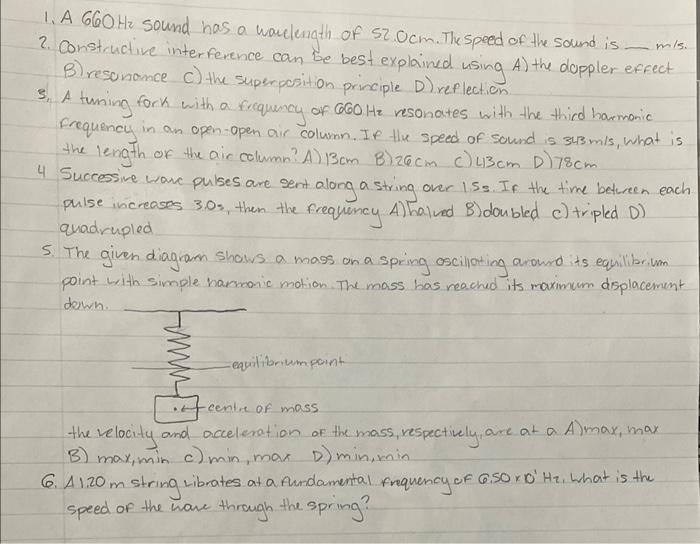 1. A 660Hz sound has a wavelength of 52.0cm. The speed of the sound is __ m/s.
2. Constructive interference can be best explained using A) the doppler effect
B) resonance C) the superposition principle D) reflection
3. A tuning fork with a frequency of 660 Hz resonates with the third harmonic
frequency in an open-open air column. If the speed of sound is 343 m/s, what is
the length of the air column? A) 13cm B) 26cm C) 43cm D) 78cm
4 Successive wave pulses are sent along a string over 1.5s. If the time between each
pulse increases 3.0s, then the frequency A) halved B) doubled C) tripled D)
quadrupled
5. The given diagram shows a mass on a spring oscillating around its equilibrium
point with simple harmonic motion. The mass has reached its maximum displacement
down.
equilibrium point
centre of mass
the velocity and acceleration of the mass, respectively, are at a A) max, max
B) max, min C) min, max D) min, min
6. A 1.20 m string vibrates at a fundamental frequency of 6.50 x 10¹ Hz. What is the
speed of the wave through the spring?